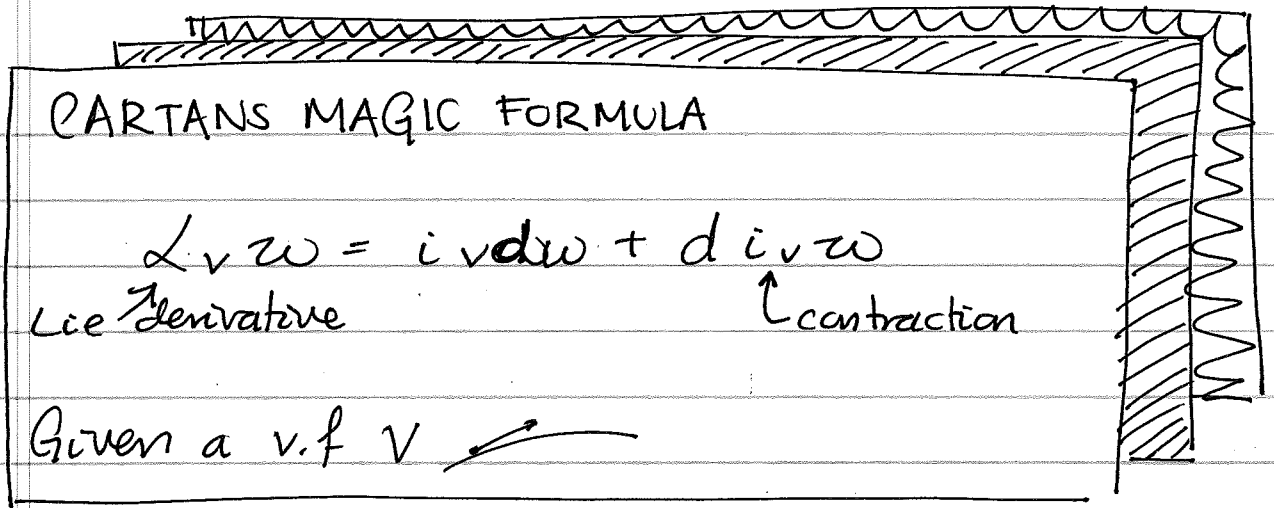 CARTANS MAGIC FORMULA
ℒ_v ω = i_v dω + d i_v ω
Lie derivative contraction
Given a v.f V